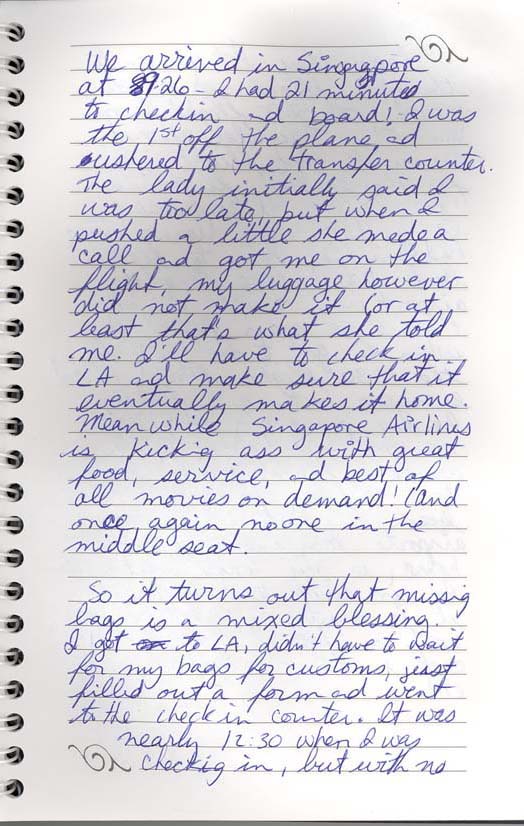 We arrived in Singapore
at 9:26 - I had 21 minutes
to checkin and board! I was
the 1st off the plane and
ushered to the transfer counter.
The lady initially said I
was too late, but when I
pushed a little she made a
call and got me on the
flight, my luggage however
did not make it (or at
least that's what she told
me. I'll have to check in
LA and make sure that it
eventually makes it home.
Meanwhile Singapore Airlines
is kicking ass with great
food, service, and best of
all movies on demand! (and
once again no one in the
middle seat.
So it turns out that missing
bags is a mixed blessing.
I got to LA, didn't have to wait
for my bags for customs, just
filled out a form and went
to the check in counter. It was
nearly 12:30 when I was
checkig in, but with no